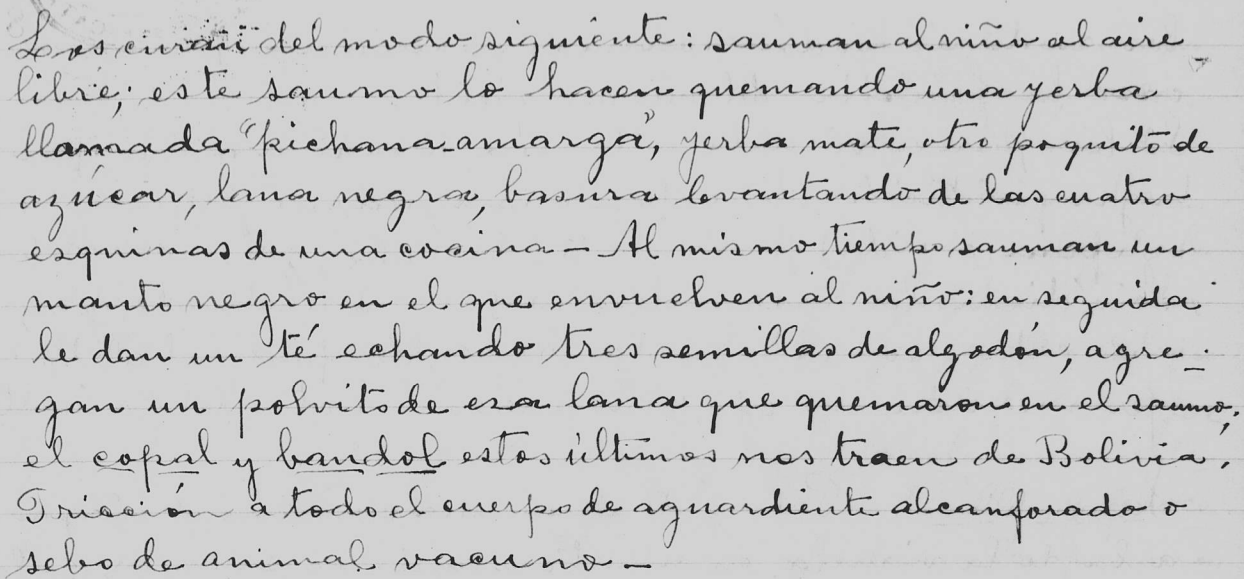 Los curan del modo siguiente: sauman al niño al aire
libre; este saumo lo hacen quemando una yerba
llamada "pichana-amarga", yerba mate, otro poquito de
azúcar, lana negra, basura levantando de las cuatro
esquinas de una cocina - Al mismo tiempo sauman un
manto negro en el que envuelven al niño: en seguida
le dan un té echando tres semillas de algodón, agre-
gan un polvito de esa lana que quemaron en el saumo;
el copal y bandol estos últimos nos traen de Bolivia.
Fricción a todo el cuerpo de aguardiente alcanforado o
sebo de animal vacuno -